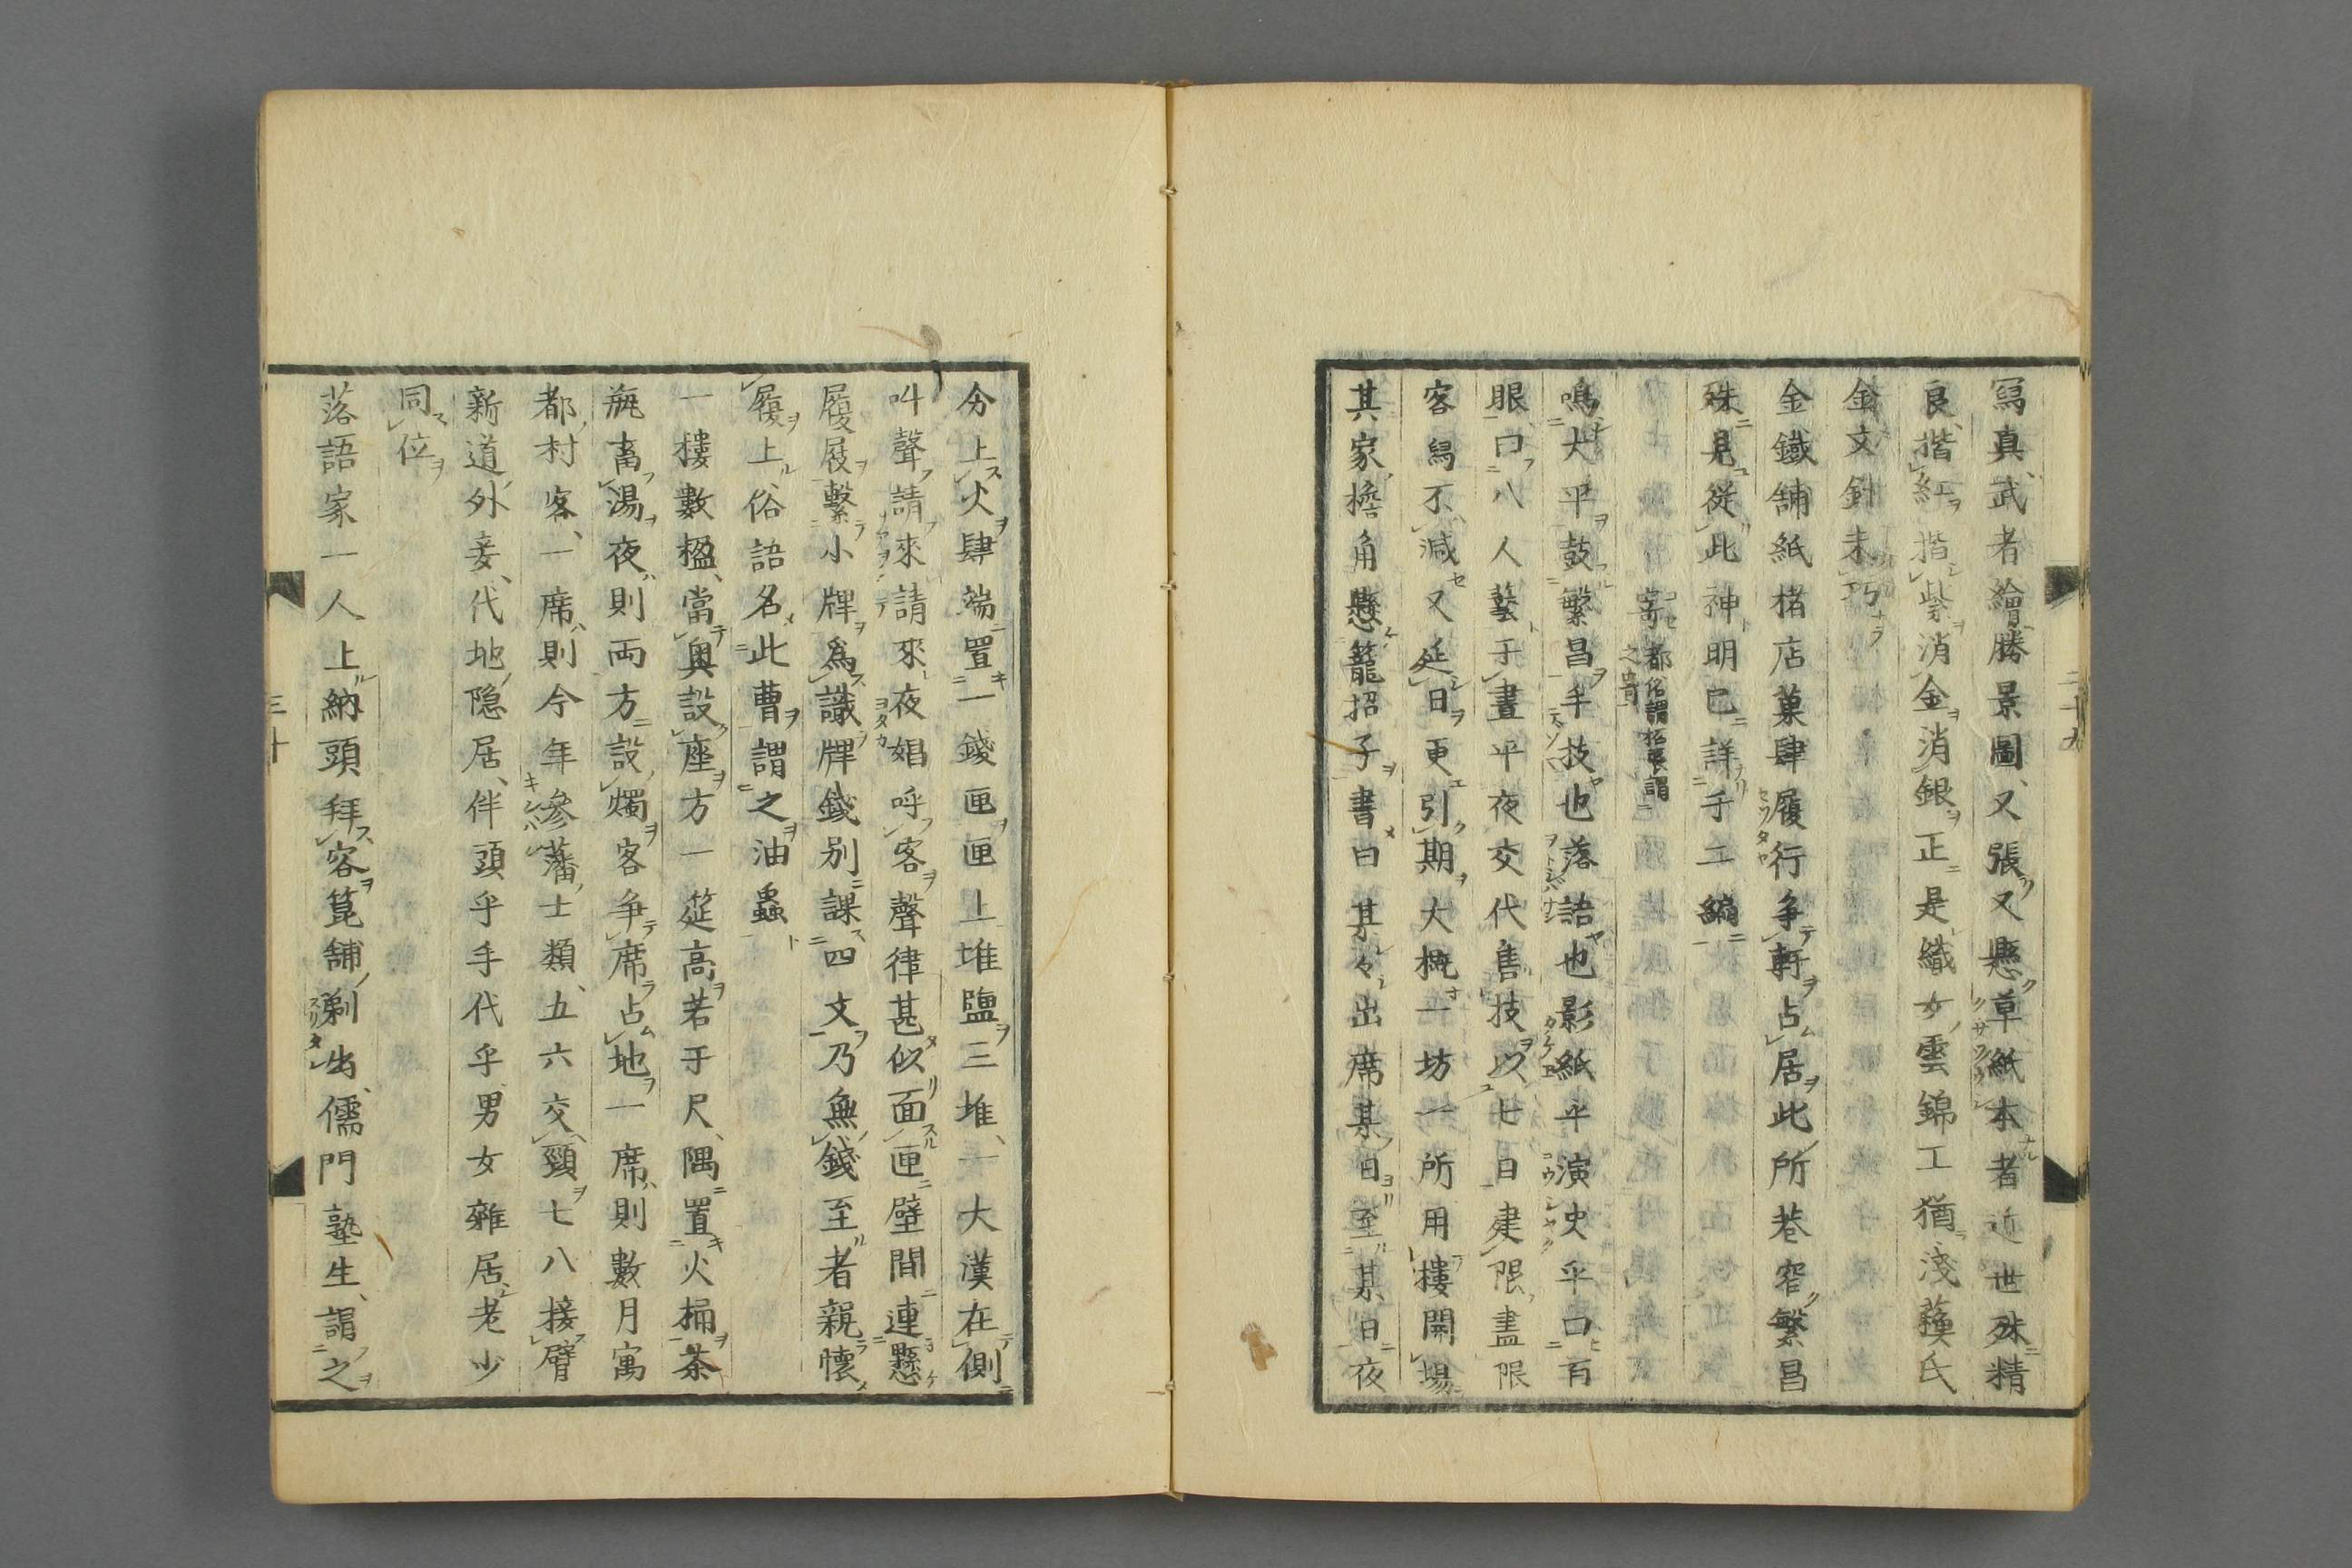 寫真、武者繪、勝景圖、又張又懸草紙本者近世殊精
良、揩紅揩紫消金消銀正是織女雲錦工猶淺蘓氏
金文針未巧
金鐵舖紙楮店菓肆履行爭軒占居此所巷窄繁昌
殊見從此神明已詳于二編
寄都俗謂招張謂之寄
鳴大平鼓繁昌手技也落語也影紙乎演史乎口百
眼、口八人藝于晝乎夜交代售技以七日建限盡限
客舄不減又延日更引期大概一坊一所用樓開場
其家檐角懸籠招子書曰某々出席某日至某日夜
二十九
分上火肆端置一錢匣匣上堆鹽三堆、一大漢在側
叫聲請來請來、夜娼呼客聲律甚似面匣壁間連懸
履屐繫小牌爲識牌錢別課四文乃無錢至者親懷
履上俗語名此曹謂之油蟲
一樓數楹、當奥設座方一筵高若于尺、隅置火桶茶
瓶畜湯夜則両方設燭客爭席占地一席則數月寓
都村客、一席則今年參藩士類、五六交頸七八接臂
新道外妾、代地隐居、伴頭乎手代乎、男女雜居、老少
同位
落語家一人上納頭拜客篦舖剃出、儒門塾生、謂之
三十